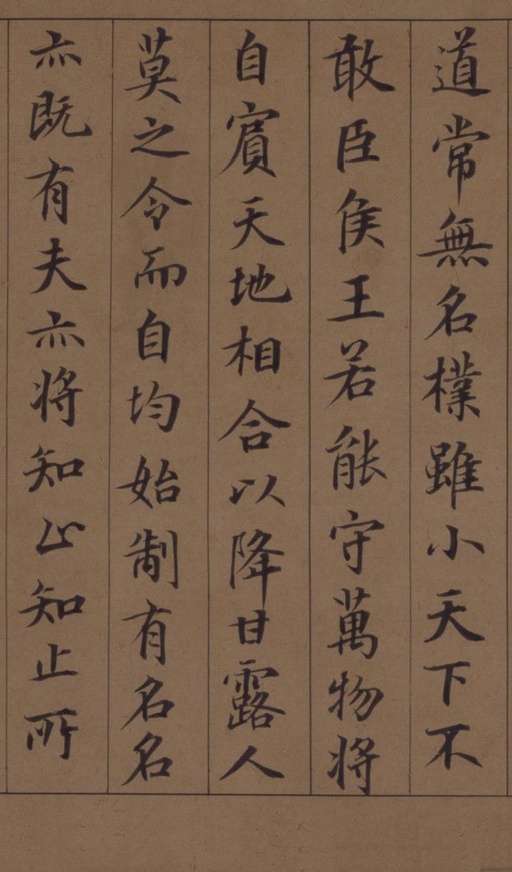 道常無名樸雖小天下不
敢臣侯王若能守萬物将
自賓天地相合以降甘露人
莫之令而自均始制有名名
亦既有夫亦将知止知止所